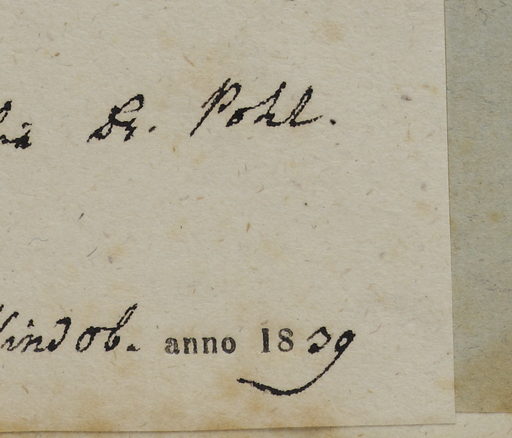 Dr. Pohl.
Vindob. anno 1839